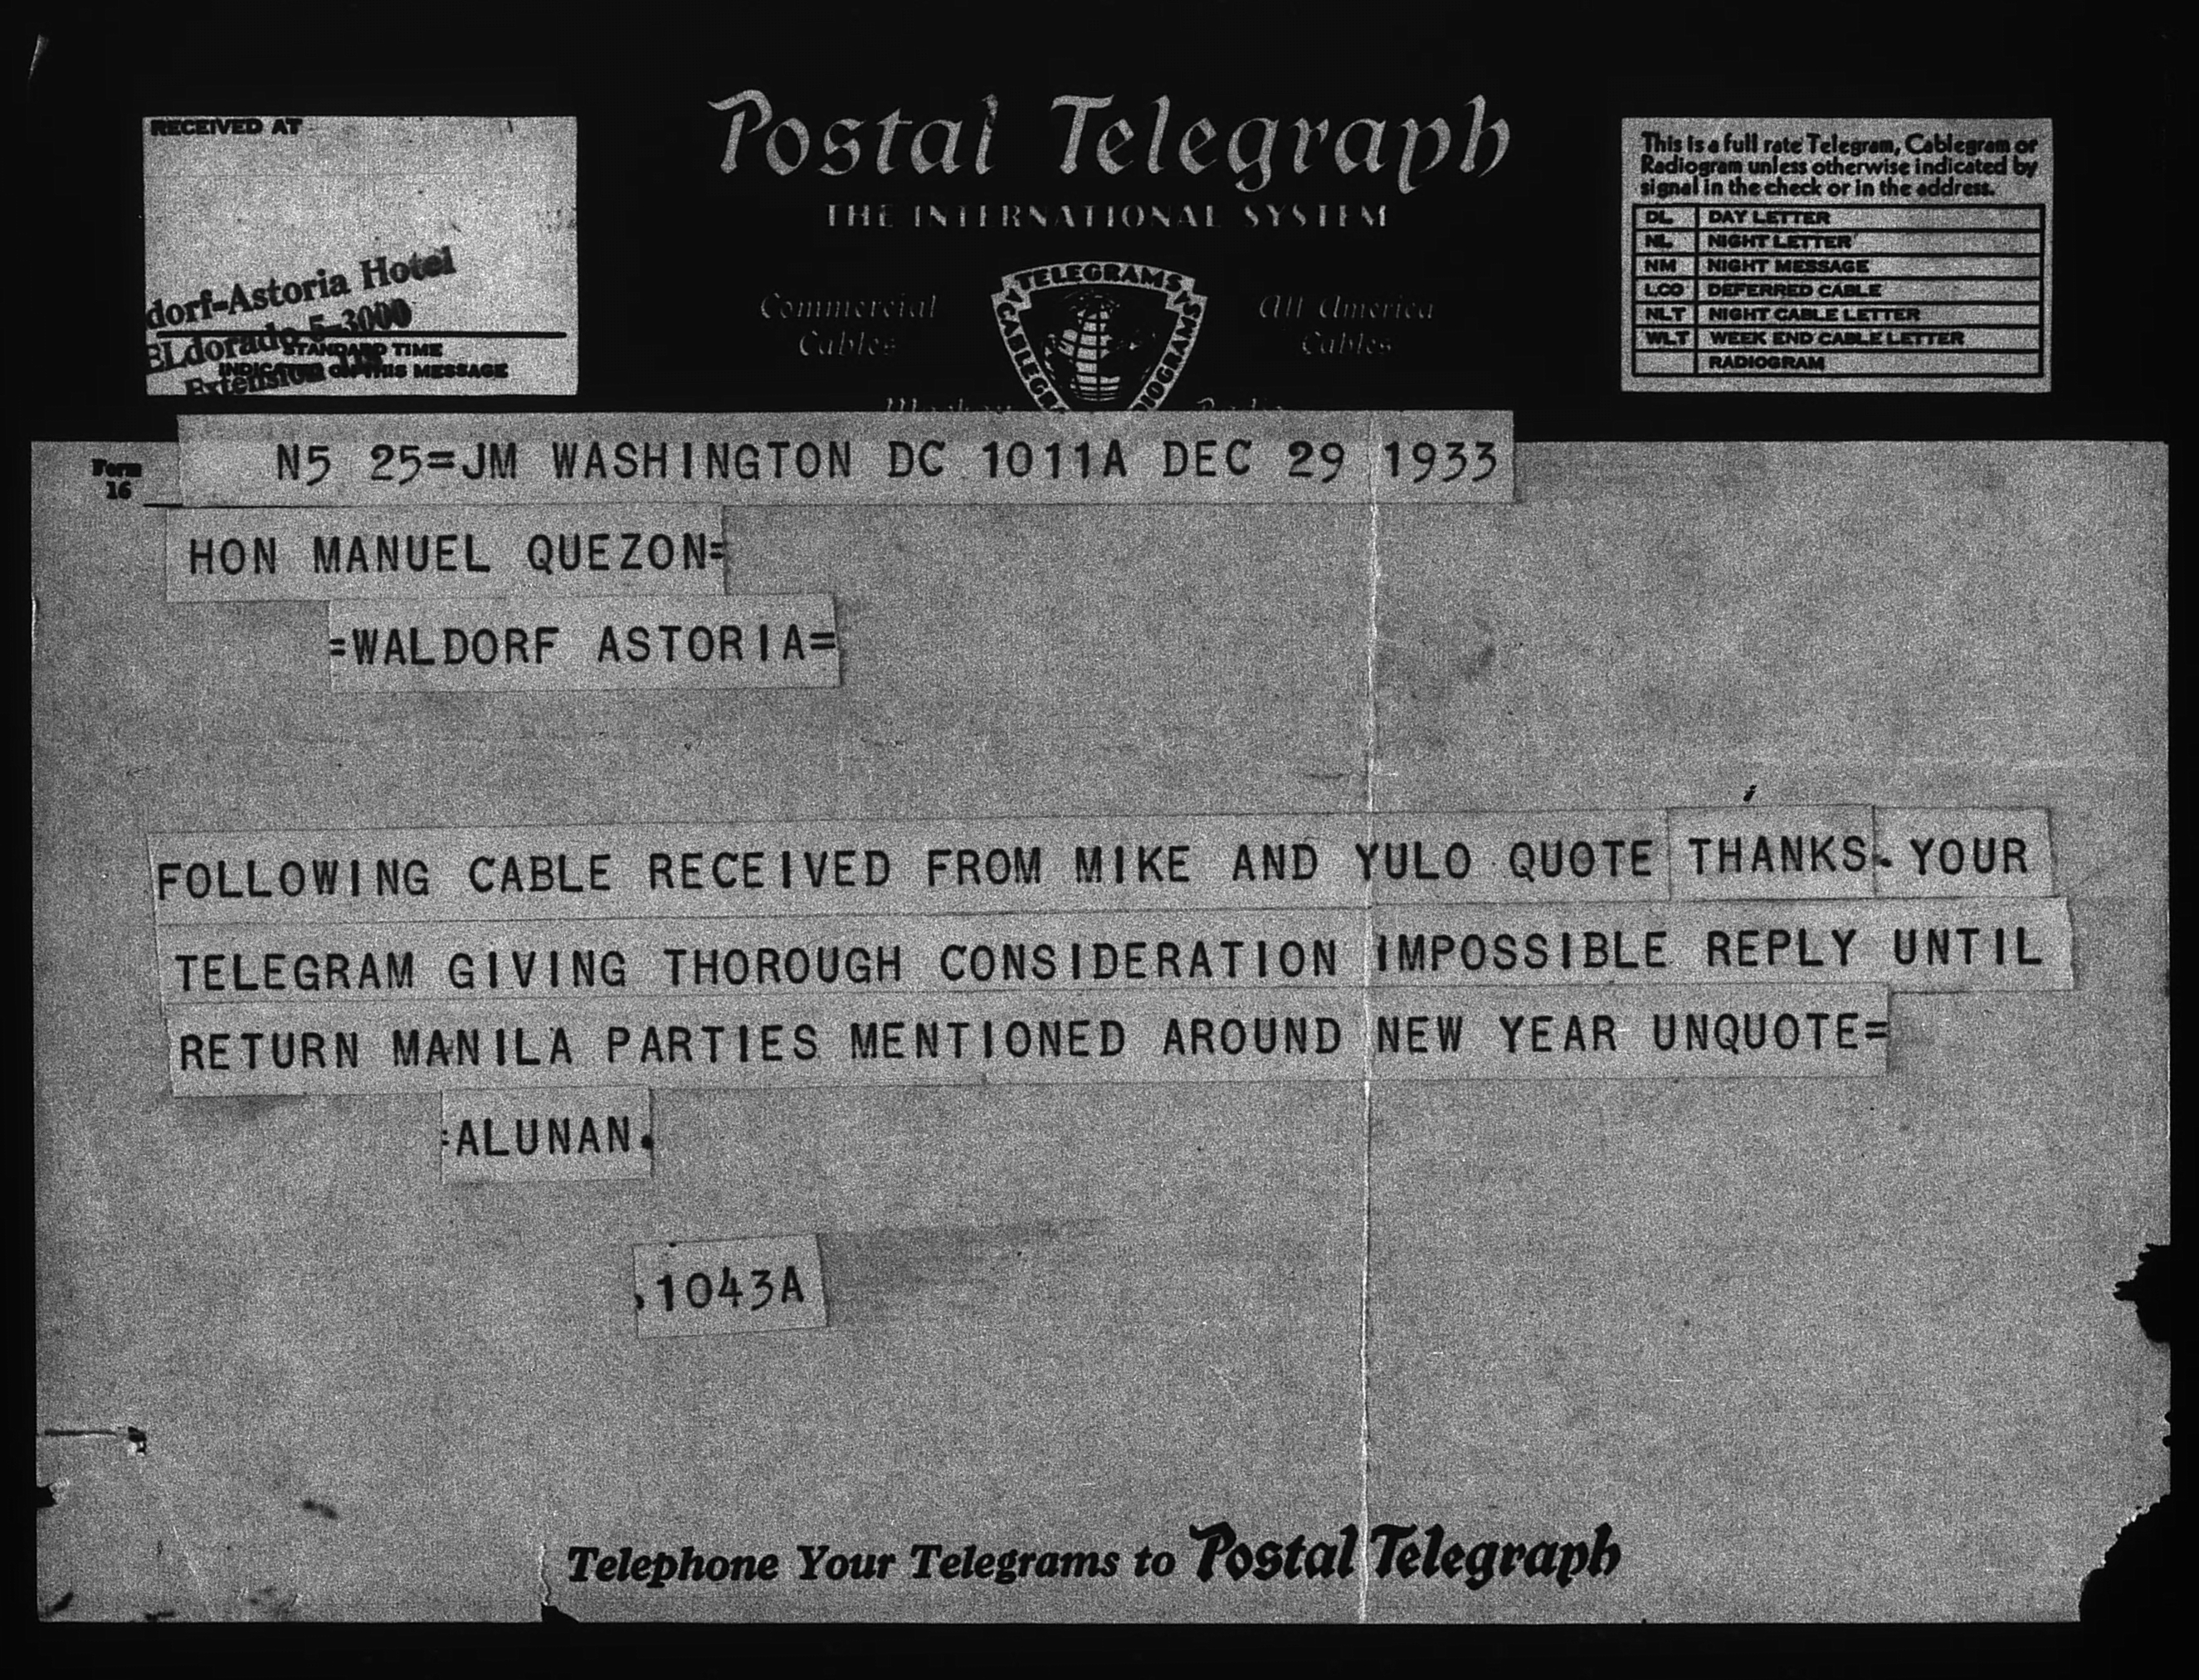 RECEIVED AT
dorf-Astoria Hotel
ELdorado 5-3000
STANDARD TIME
INDICATED ON THIS MESSAGE
Extension
Postal Telegraph
THE INTERNATIONAL SYSTEM
Commercial Cables
TELEGRAMS
All America Cables
Mackay Radio
This is a full rate Telegram, Cablegram or
Radiogram unless otherwise indicated by
signal in the check or in the address.
DL DAY LETTER
NL NIGHT LETTER
NM NIGHT MESSAGE
LCO DEFERRED CABLE
NLT NIGHT CABLE LETTER
WLT WEEK END CABLE LETTER
RADIOGRAM
Form
16
N5 25=JM WASHINGTON DC 1011A DEC 29 1933
HON MANUEL QUEZON=
=WALDORF ASTORIA=
FOLLOWING CABLE RECEIVED FROM MIKE AND YULO QUOTE THANKS. YOUR
TELEGRAM GIVING THOROUGH CONSIDERATION IMPOSSIBLE REPLY UNTIL
RETURN MANILA PARTIES MENTIONED AROUND NEW YEAR UNQUOTE=
:ALUNAN.
1043A
Telephone Your Telegrams to Postal Telegraph